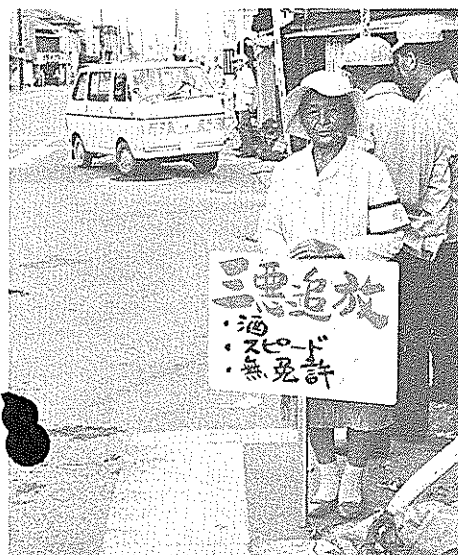 三悪追放
・酒
・スピード
・無免許